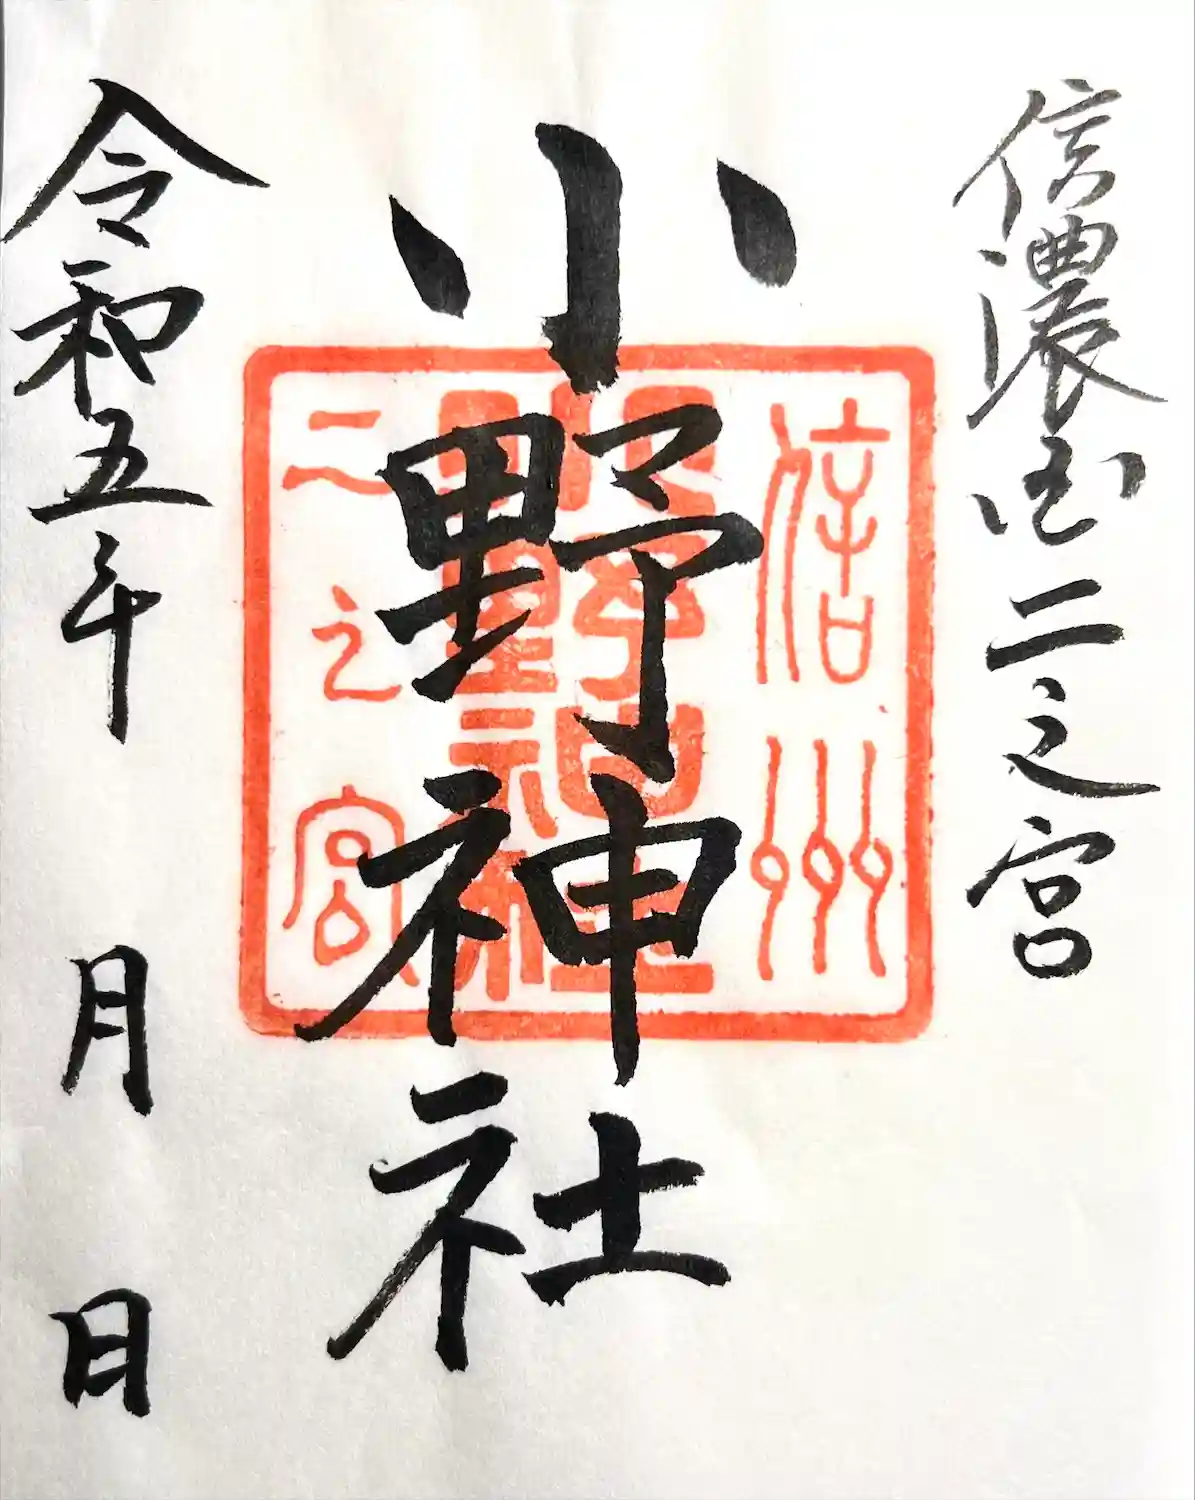 信濃国二之宮
小野神社
信州
小野神社
二之宮
令和五年 月 日